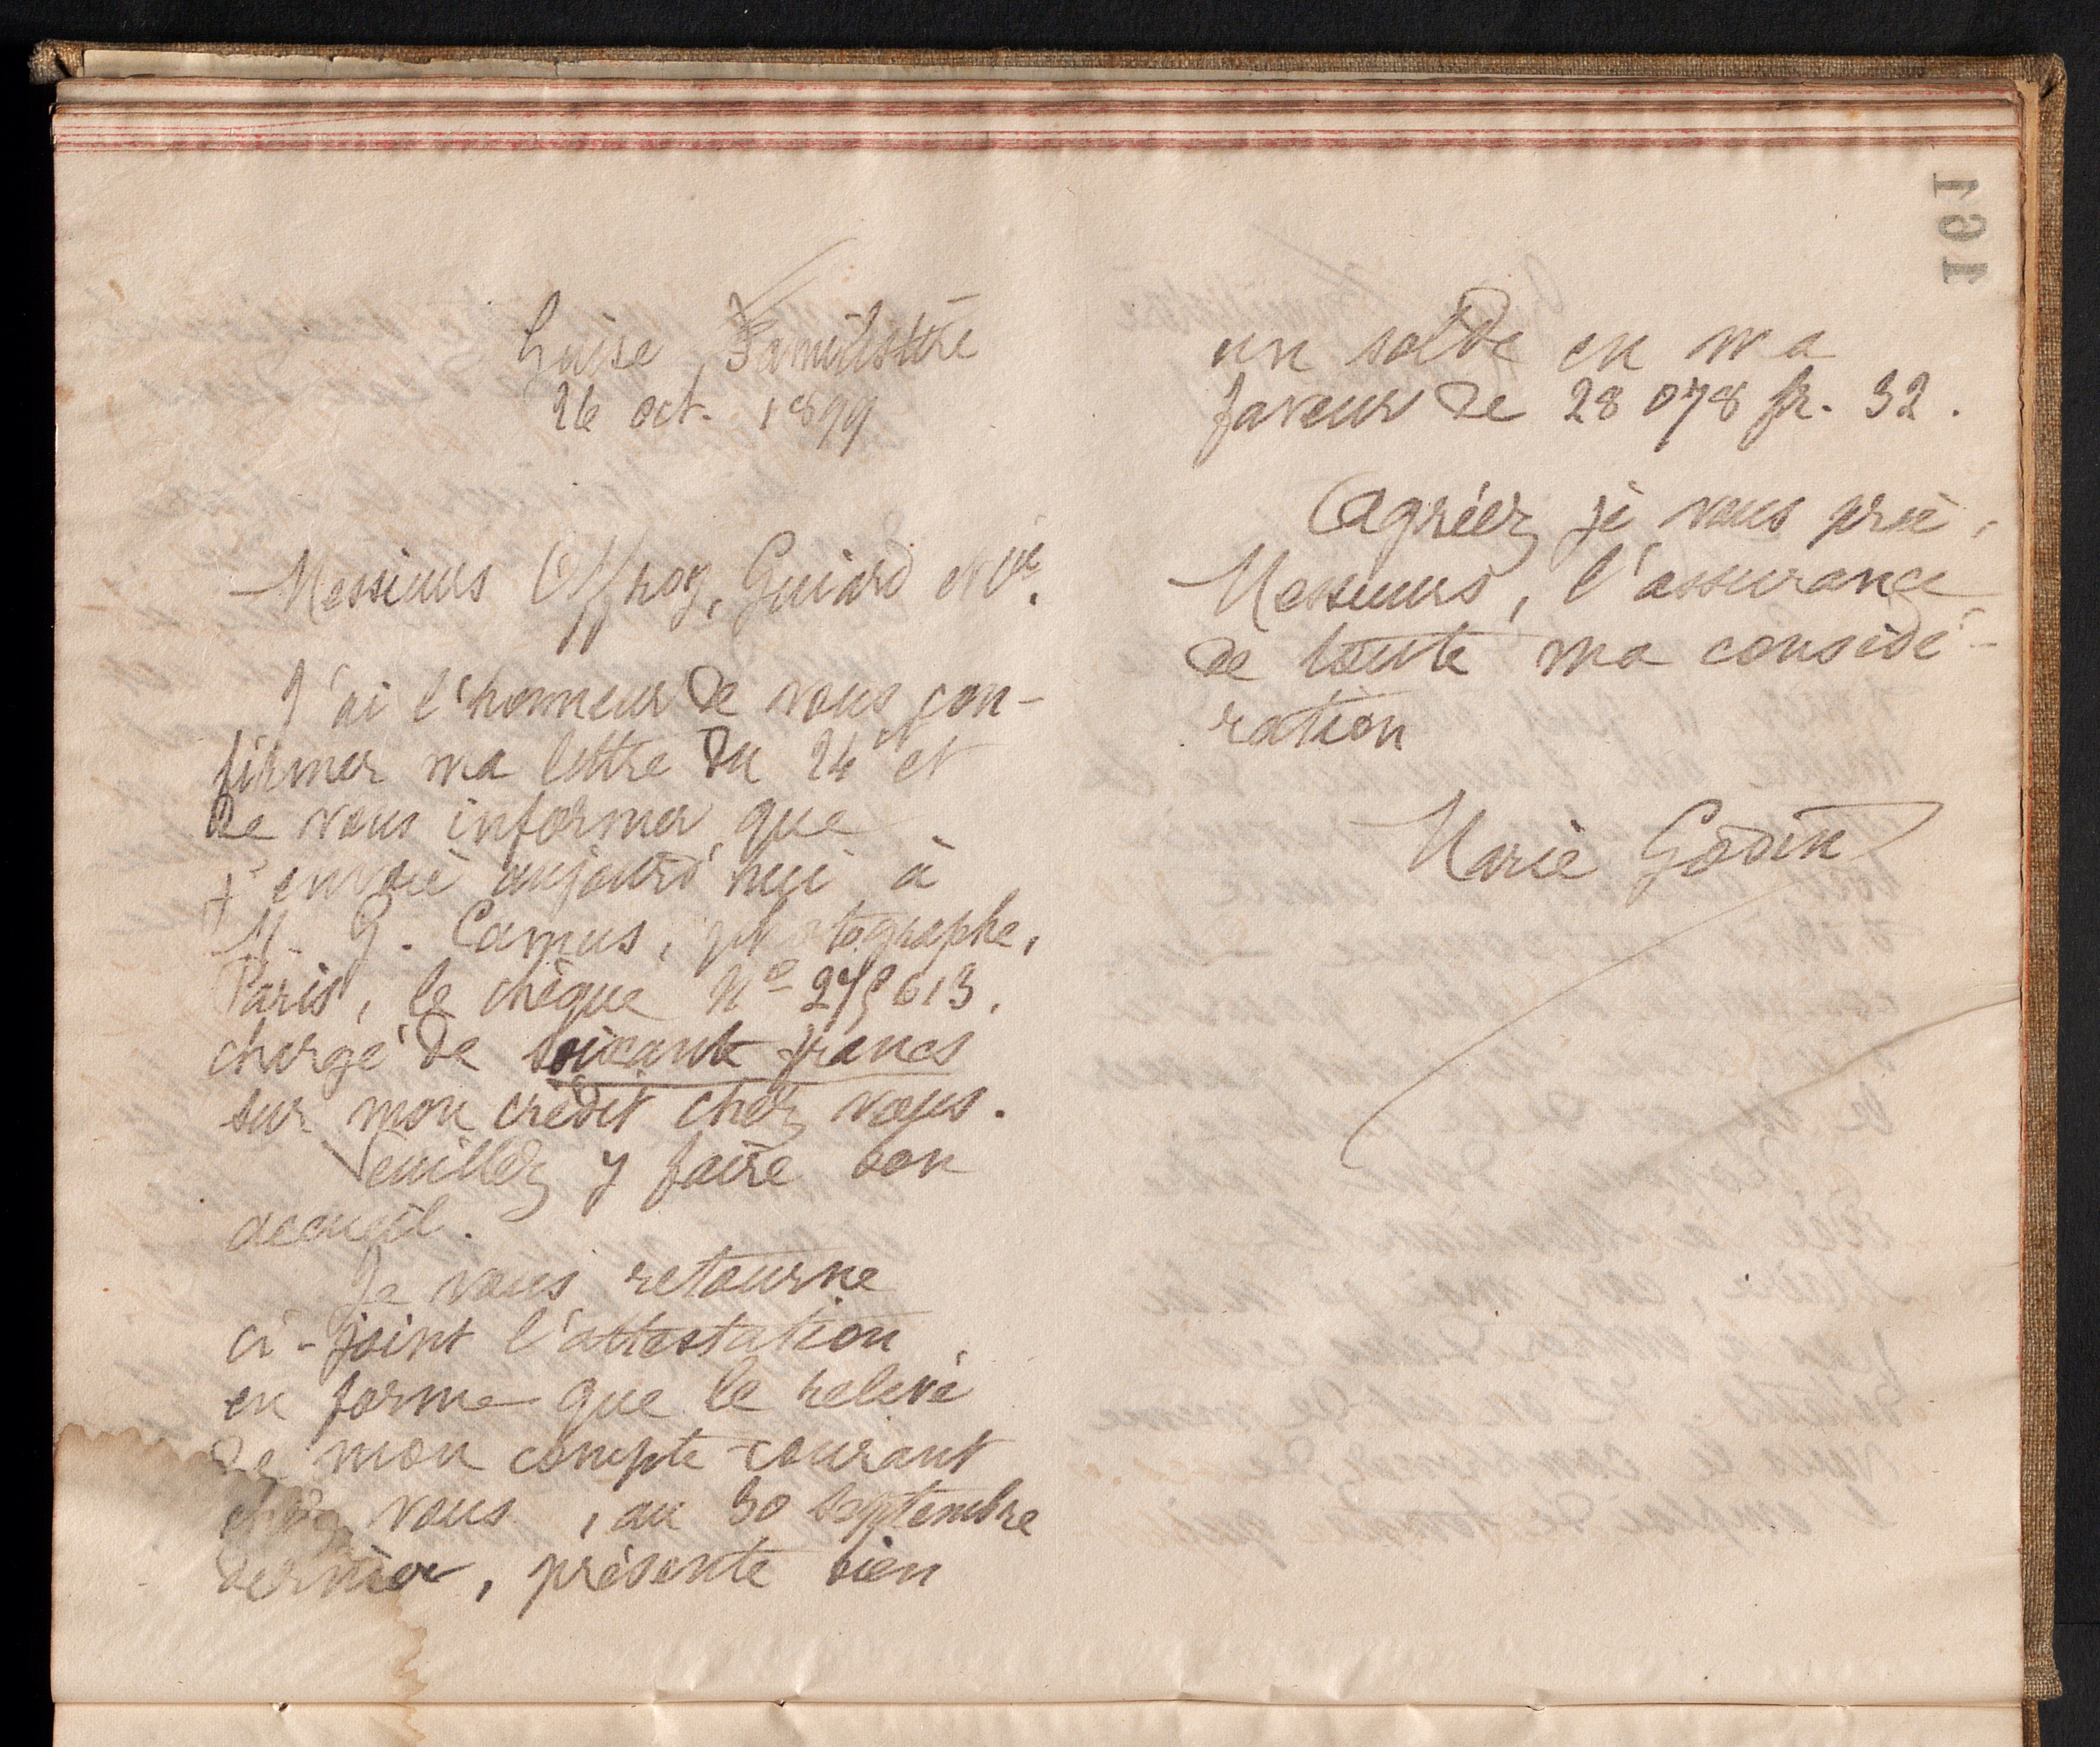 Guise Familistère
26 oct. 1899
Messieurs Offroy, Guiard et Cie.
J'ai l'honneur de vous con-
firmer ma lettre du 24 et
de vous informer que
j'envoie aujourd'hui à
M. G. Camus, photographe,
Paris, le chèque No 275613,
chargé de soixante francs
sur mon crédit chez vous.
Veuillez y faire bon
accueil.
Je vous retourne
ci-joint l'attestation
en forme que le relevé
de mon compte courant
chez vous, au 30 septembre
dernier, présente bien
un solde en ma
faveur de 28 078 fr. 32.
Agréez je vous prie,
Messieurs, l'assurance
de toute ma considé-
ration
Marie Godin
191